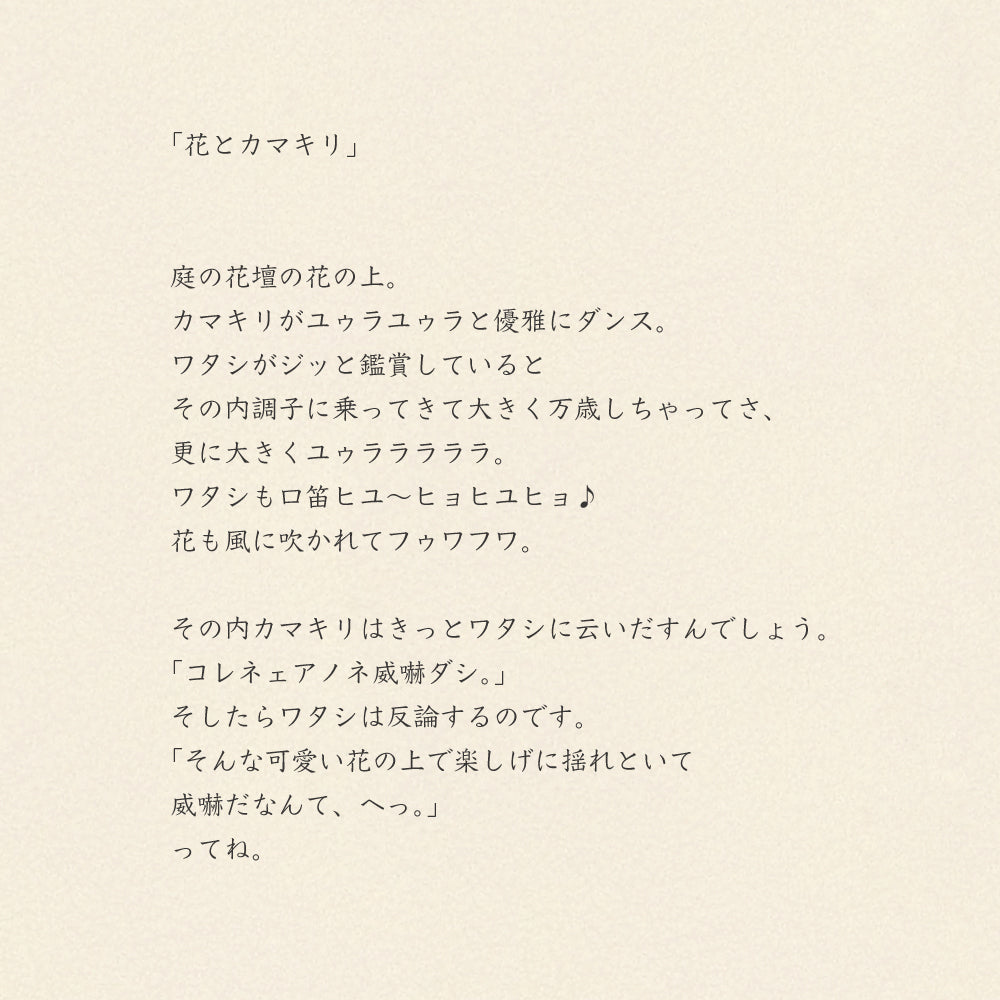 「花とカマキリ」
庭の花壇の花の上。
カマキリがユゥラユゥラと優雅にダンス。
ワタシがジッと鑑賞していると
その内調子に乗ってきて大きく万歳しちゃってさ、
更に大きくユゥラララララ。
ワタシも口笛ヒユ〜ヒョヒユヒョ♪
花も風に吹かれてフゥワフワ。
その内カマキリはきっとワタシに云いだすんでしょう。
「コレネェアノネ威嚇ダシ。」
そしたらワタシは反論するのです。
「そんな可愛い花の上で楽しげに揺れといて
威嚇だなんて、へっ。」
ってね。